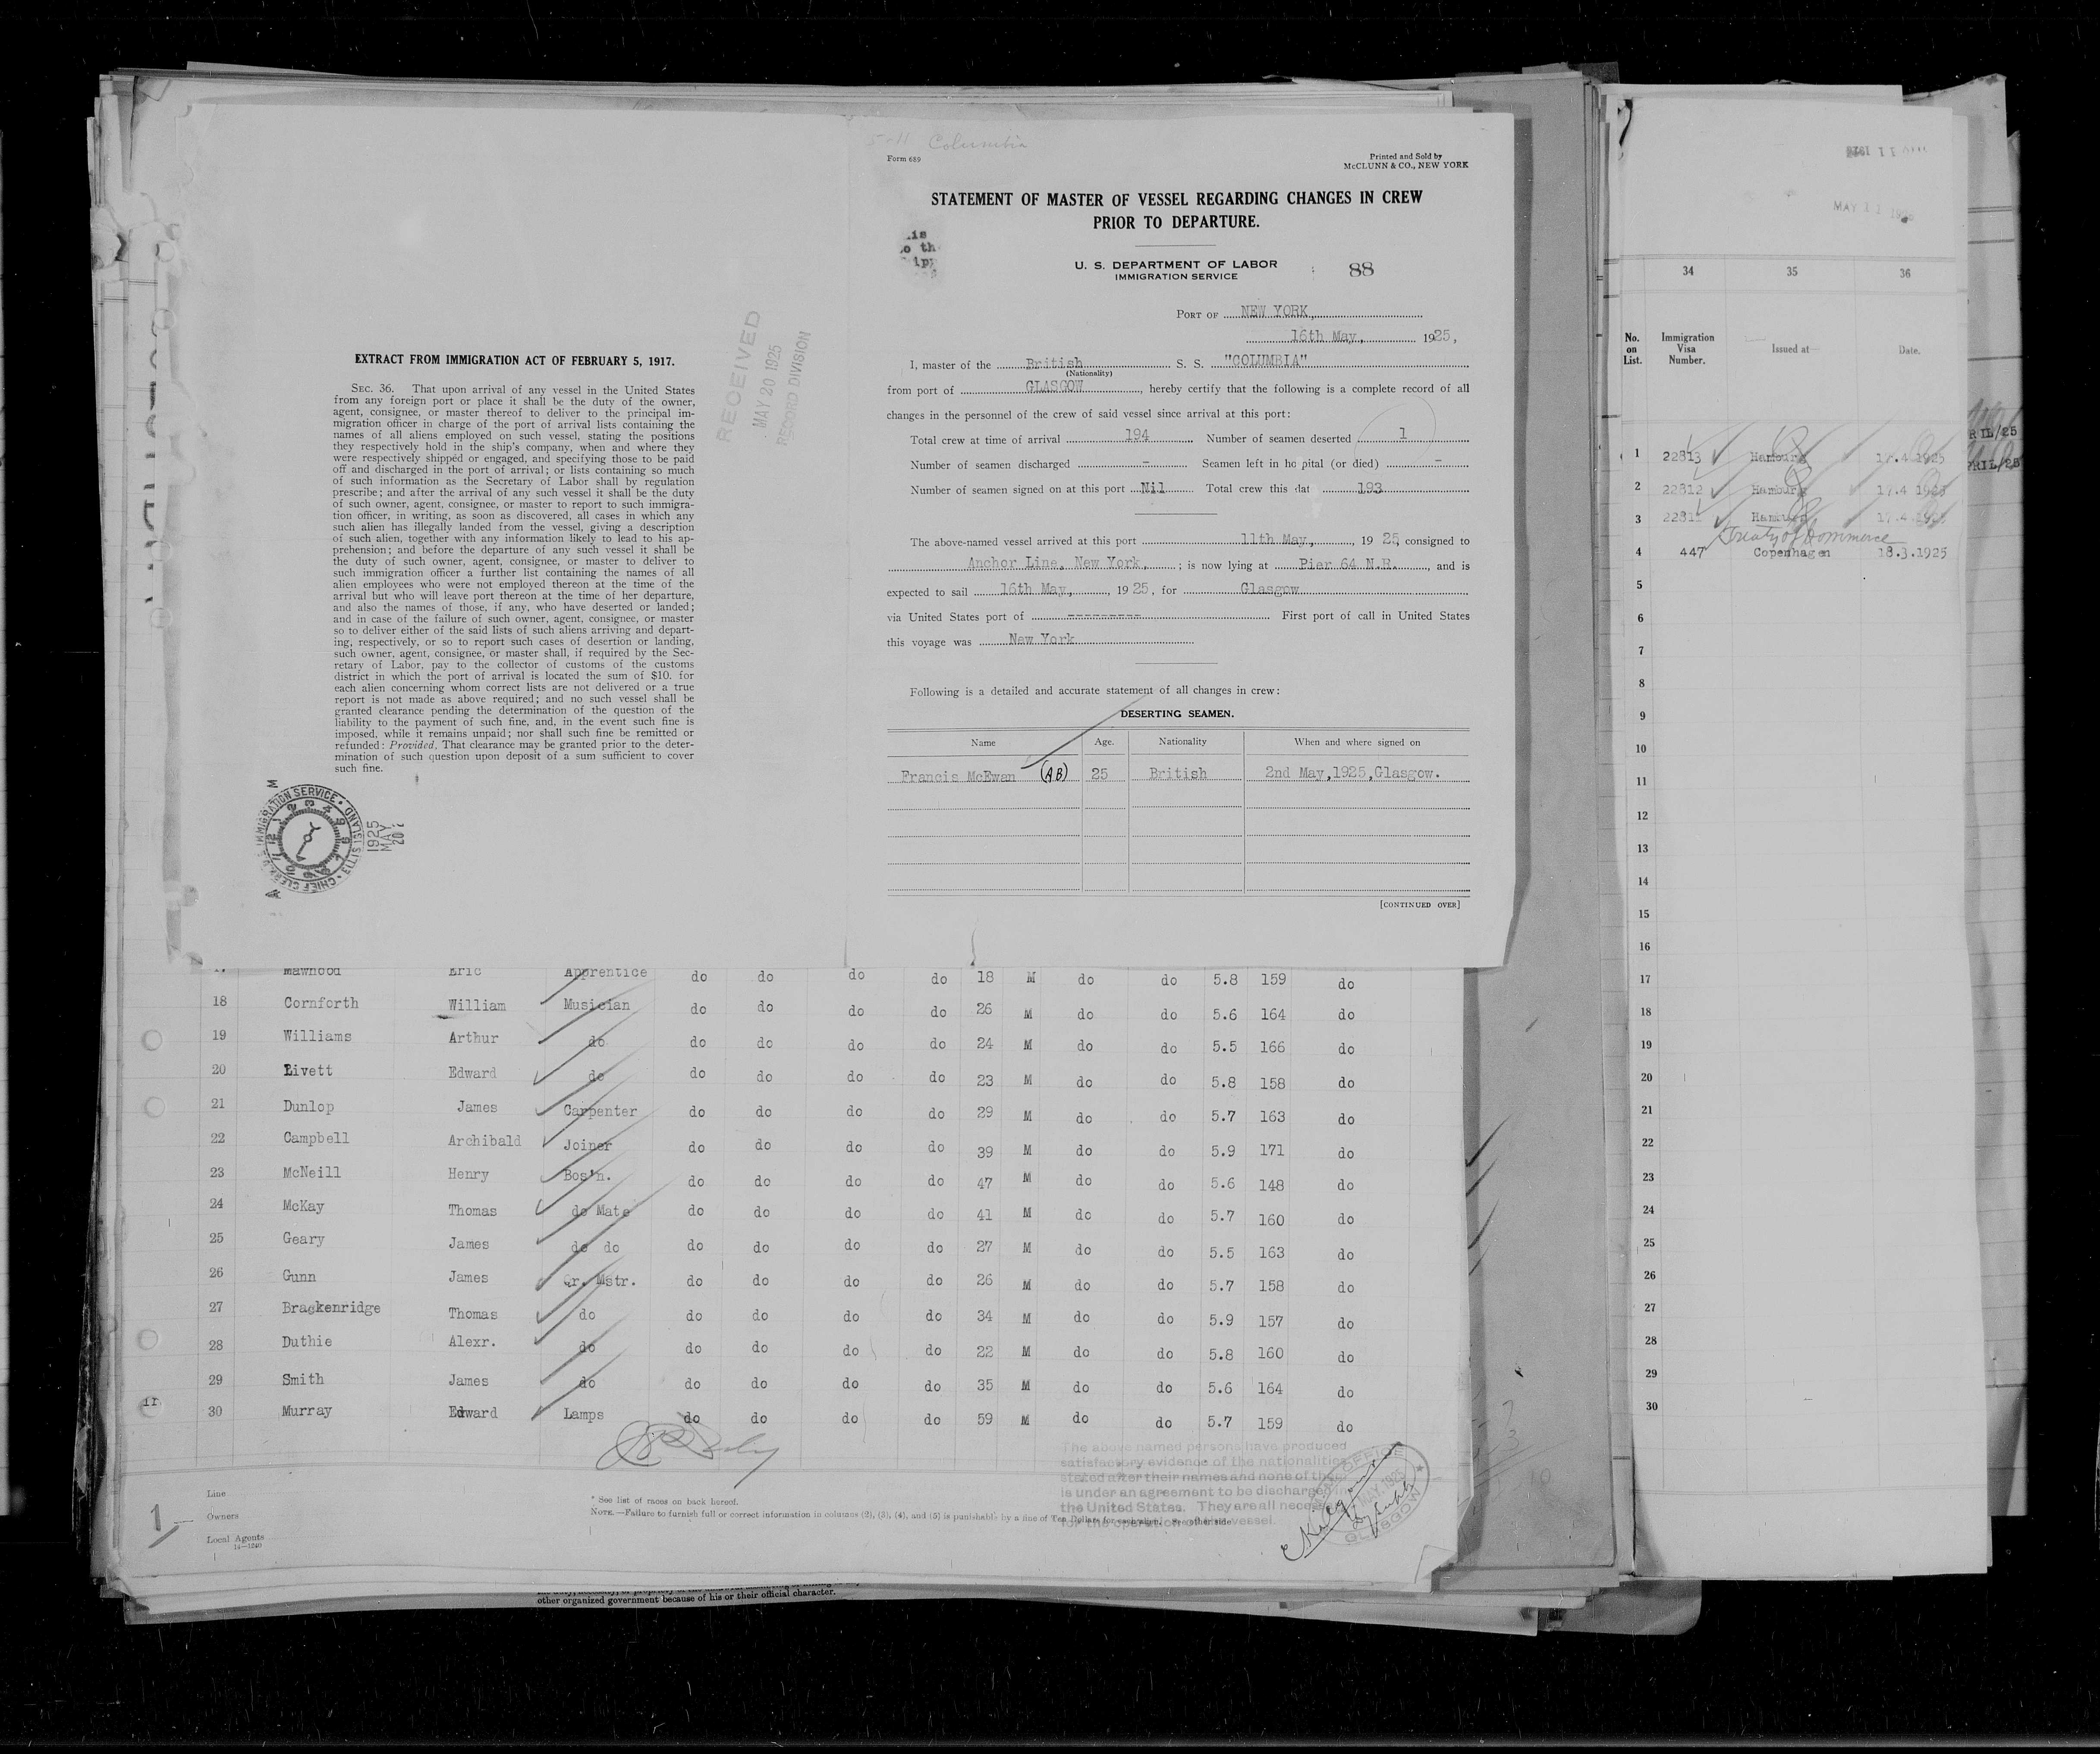 5-11 Columbia
Form 689
Printed and Sold by
McCLUNN & CO., NEW YORK
STATEMENT OF MASTER OF VESSEL REGARDING CHANGES IN CREW
PRIOR TO DEPARTURE.
U. S. DEPARTMENT OF LABOR
IMMIGRATION SERVICE
88
PORT OF NEW YORK,
16th May, 1925,
I, master of the British S. S. "COLUMBIA"
(Nationality)
from port of GLASGOW, hereby certify that the following is a complete record of all
changes in the personnel of the crew of said vessel since arrival at this port:
Total crew at time of arrival 194 Number of seamen deserted 1
Number of seamen discharged - Seamen left in ho pital (or died) -
Number of seamen signed on at this port Nil Total crew this dat 193
The above-named vessel arrived at this port 11th May, 1925, consigned to
Anchor Line, New York, ; is now lying at Pier 64 N.R., and is
expected to sail 16th May, 1925, for Glasgow
via United States port of --------- First port of call in United States
this voyage was New York
Following is a detailed and accurate statement of all changes in crew:
DESERTING SEAMEN.
Name Age. Nationality When and where signed on
Francis McEwan (AB) 25 British 2nd May, 1925, Glasgow.
[CONTINUED OVER]
EXTRACT FROM IMMIGRATION ACT OF FEBRUARY 5, 1917.
SEC. 36. That upon arrival of any vessel in the United States
from any foreign port or place it shall be the duty of the owner,
agent, consignee, or master thereof to deliver to the principal im-
migration officer in charge of the port of arrival lists containing the
names of all aliens employed on such vessel, stating the positions
they respectively hold in the ship's company, when and where they
were respectively shipped or engaged, and specifying those to be paid
off and discharged in the port of arrival; or lists containing so much
of such information as the Secretary of Labor shall by regulation
prescribe; and after the arrival of any such vessel it shall be the duty
of such owner, agent, consignee, or master to report to such immigra-
tion officer, in writing, as soon as discovered, all cases in which any
such alien has illegally landed from the vessel, giving a description
of such alien, together with any information likely to lead to his ap-
prehension; and before the departure of any such vessel it shall be
the duty of such owner, agent, consignee, or master to deliver to
such immigration officer a further list containing the names of all
alien employees who were not employed thereon at the time of the
arrival but who will leave port thereon at the time of her departure,
and also the names of those, if any, who have deserted or landed;
and in case of the failure of such owner, agent, consignee, or master
so to deliver either of the said lists of such aliens arriving and depart-
ing, respectively, or so to report such cases of desertion or landing,
such owner, agent, consignee, or master shall, if required by the Sec-
retary of Labor, pay to the collector of customs of the customs
district in which the port of arrival is located the sum of $10. for
each alien concerning whom correct lists are not delivered or a true
report is not made as above required; and no such vessel shall be
granted clearance pending the determination of the question of the
liability to the payment of such fine, and, in the event such fine is
imposed, while it remains unpaid; nor shall such fine be remitted or
refunded: Provided, That clearance may be granted prior to the deter-
mination of such question upon deposit of a sum sufficient to cover
such fine.
RECEIVED
MAY 20 1925
RECORD DIVISION
U.S. IMMIGRATION SERVICE • ELLIS ISLAND • CHIEF CLERK
1925
MAY
20
Mawhood Eric Apprentice do do do do 18 M do do 5.8 159 do
18 Cornforth William Musician do do do do 26 M do do 5.6 164 do
19 Williams Arthur do do do do do 24 M do do 5.5 166 do
20 Livett Edward do do do do do 23 M do do 5.8 158 do
21 Dunlop James Carpenter do do do do 29 M do do 5.7 163 do
22 Campbell Archibald Joiner do do do do 39 M do do 5.9 171 do
23 McNeill Henry Bos'n. do do do do 47 M do do 5.6 148 do
24 McKay Thomas do Mate do do do do 41 M do do 5.7 160 do
25 Geary James do do do do do do 27 M do do 5.5 163 do
26 Gunn James Qr. Mstr. do do do do 26 M do do 5.7 158 do
27 Brackenridge Thomas do do do do do 34 M do do 5.9 157 do
28 Duthie Alexr. do do do do do 22 M do do 5.8 160 do
29 Smith James do do do do do 35 M do do 5.6 164 do
30 Murray Edward Lamps do do do do 59 M do do 5.7 159 do
The above named persons have produced
satisfactory evidence of the nationalities
stated after their names and none of them
is under an agreement to be discharged in
the United States. They are all necessary
for the operation of the vessel.
GLASGOW
MAY. 1925
1
Line
Owners
Local Agents
14-1240
* See list of races on back hereof.
NOTE.—Failure to furnish full or correct information in columns (2), (3), (4), and (5) is punishable by a fine of Ten Dollars for each alien. See other side
other organized government because of his or their official character.
MAY 11 1925
34 35 36
No. on List. Immigration Visa Number. Issued at Date.
1 22813 Hamburg 17.4.1925
2 22812 Hamburg 17.4.1925
3 22811 Hamburg 17.4.1925
Treaty of Commerce
4 447 Copenhagen 18.3.1925
5
6
7
8
9
10
11
12
13
14
15
16
17
18
19
20
21
22
23
24
25
26
27
28
29
30
RIL/25
PRIL/25